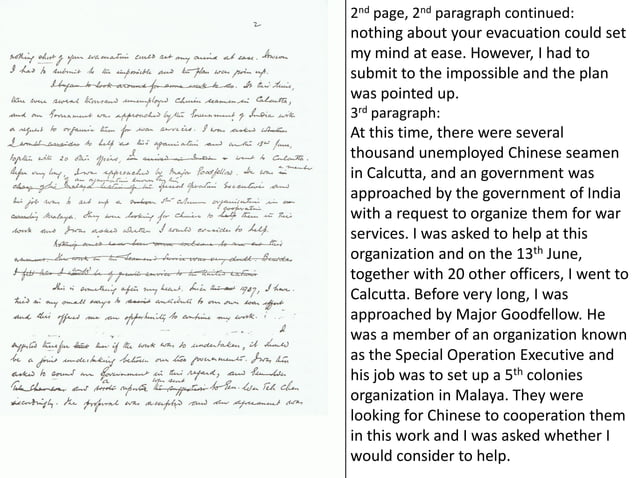 2
nothing short of your evacuation could set my mind at ease. However
I had to submit to the impossible and the plan was
I began to look around for some work to do. At this time,
there were several thousand unemployed Chinese seamen in Calcutta,
and our Government was approached by the Government of India with
a request to organise them for war services. I was asked whether
I would consider to help at this organisation and on the 13th June,
together with 20 other officers, I went to Calcutta.
Before very long, I was approached by Major Goodfellow. He was a member
of an organisation known as the Special Operation Executive and
his job was to set up a 5th column organisation in
Malaya. They were looking for Chinese to cooperation them in this
work and I was asked whether I would consider to help.
Nothing could have been more welcome to me at this
This is something after my heart. Since 1937, I have
tried in my small ways to contribute to our own war effort
and this offered me an opportunity to continue my work.
I
suggested that if the work was to be undertaken, it should
be a joint undertaking between our two governments. I was then
asked to sound our Government in this regard, and
to Gen. Wu Teh Chen
accordingly. The proposal was accepted and an agreement was
2nd page, 2nd paragraph continued:
nothing about your evacuation could set
my mind at ease. However, I had to
submit to the impossible and the plan
was pointed up.
3rd paragraph:
At this time, there were several
thousand unemployed Chinese seamen
in Calcutta, and an government was
approached by the government of India
with a request to organize them for war
services. I was asked to help at this
organization and on the 13th June,
together with 20 other officers, I went to
Calcutta. Before very long, I was
approached by Major Goodfellow. He
was a member of an organization known
as the Special Operation Executive and
his job was to set up a 5th colonies
organization in Malaya. They were
looking for Chinese to cooperation them
in this work and I was asked whether I
would consider to help.